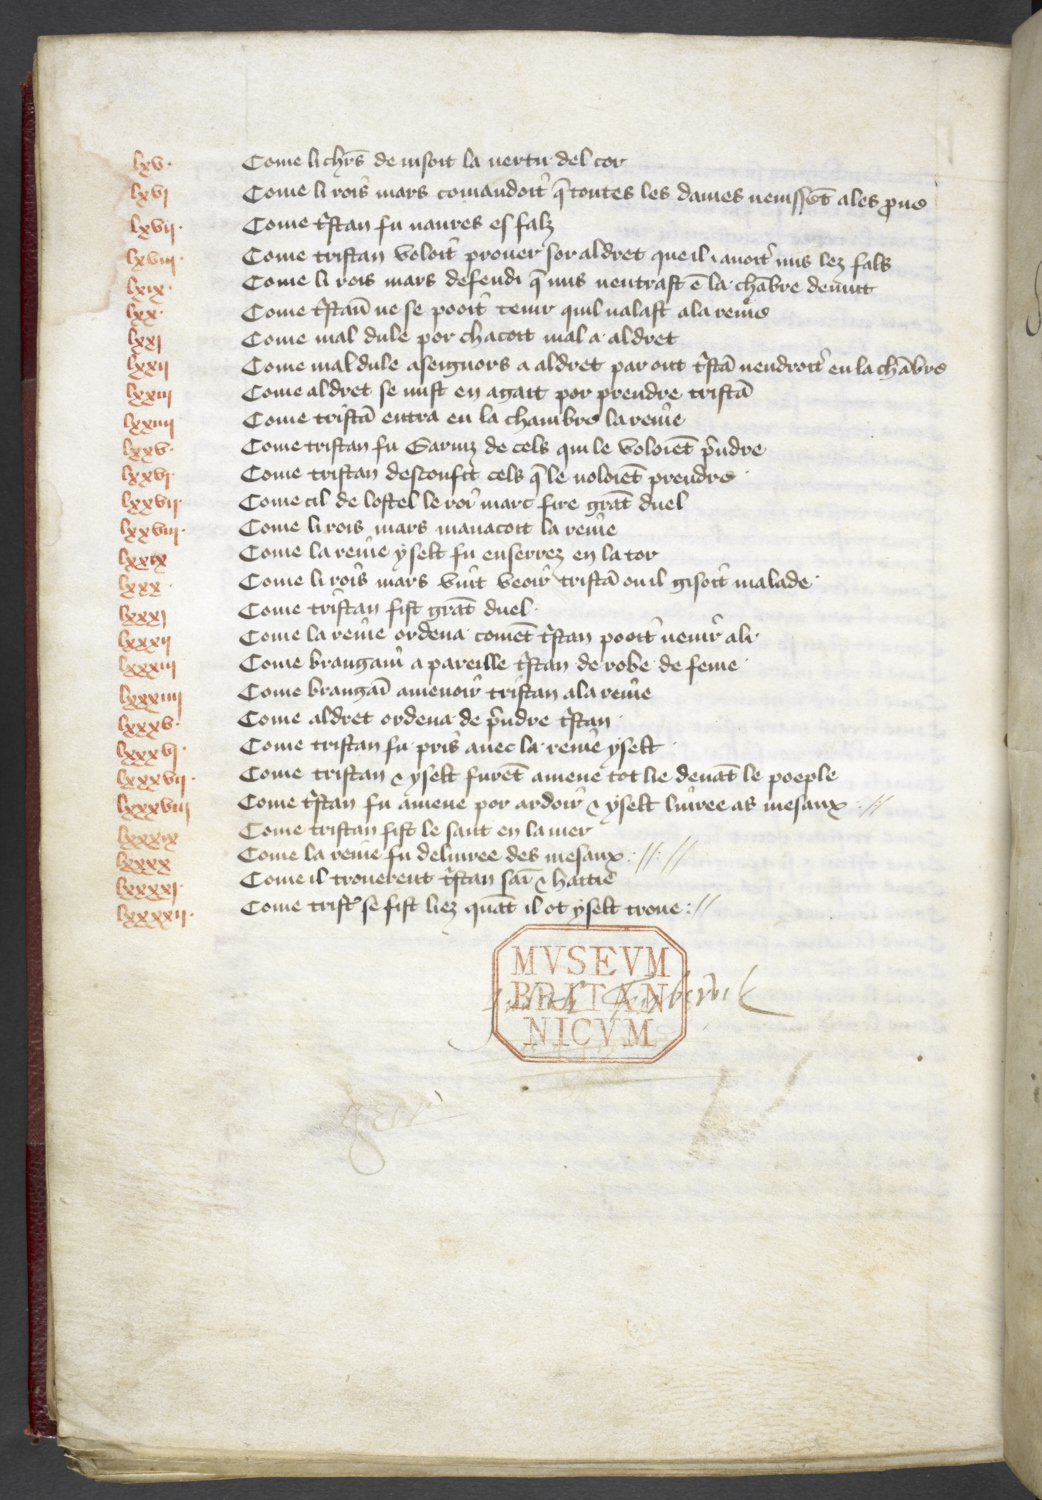 lxv· Come li chr̄s de uisoit la uertu del cor
lxvj Come li rois mars comandoit q̄ toutes les dames uenissēt a les p̱ue
lxvij· Come t̾stan fu naures es falz
lxviij· Come tristan voloit prouer sor aldret que il i auoit mis lez fals
lxix· Come li rois mars defendi q̄ nus nentrast ē la chābre deuāt
lxx· Come t̾stan̄ ne se pooit tenir quil nalast a la reine
lxxj Come mal dule por chacoit mal a aldret
lxxij Come mal dule aseignors a aldret par out t̾stā uendroit en la chābre
lxxiij Come aldret se mist en agait por prendre tristā
lxxiiij Come tristā entra en la chambre la reine
lxxv· Come tristan fu Garniz de cels qui le voloiēt p̾ndre
lxxvj· Come tristan desconfit cels q̄ le uoloiēt prendre·
lxxvij· Come cil de lostel le roi marc fire grāt duel
lxxviij· Come li rois mars manacoit la reine
lxxix Come la reine yselt fu enserrez en la tor
lxxx· Come li rois mars vint veoir tristā ou il gisoit malade·
lxxxj Come tristan fist grāt duel·
lxxxij Come la reine ordena comēt t̾stan pooit uenir a li·
lxxxiij Come brangain a pareille t̾stan de robe de feme·
lxxxiiij Come brangaī amenoir tristan a la reine
lxxxv· Come aldret ordena de p̾ndre t̾stan·
lxxxvj· Come tristan fu pris auec la reine yselt·
lxxxvij· Come tristan ⁊ yselt furēt amene tot lie deuāt le poeple
lxxxviij Come t̾stan fu amene por ardoir ⁊ yselt liuree as mesaux·//
lxxxix Come tristan fist le saut en la mer
lxxxx Come la reine fu deliuree des mesaux://://
lxxxxj· Come il trouerent t̾stan sai ⁊ haitie
lxxxxij· Come trist̾ se fist liez quāt il ot yselt troue://
MVSEVM
BRITAN
NICVM